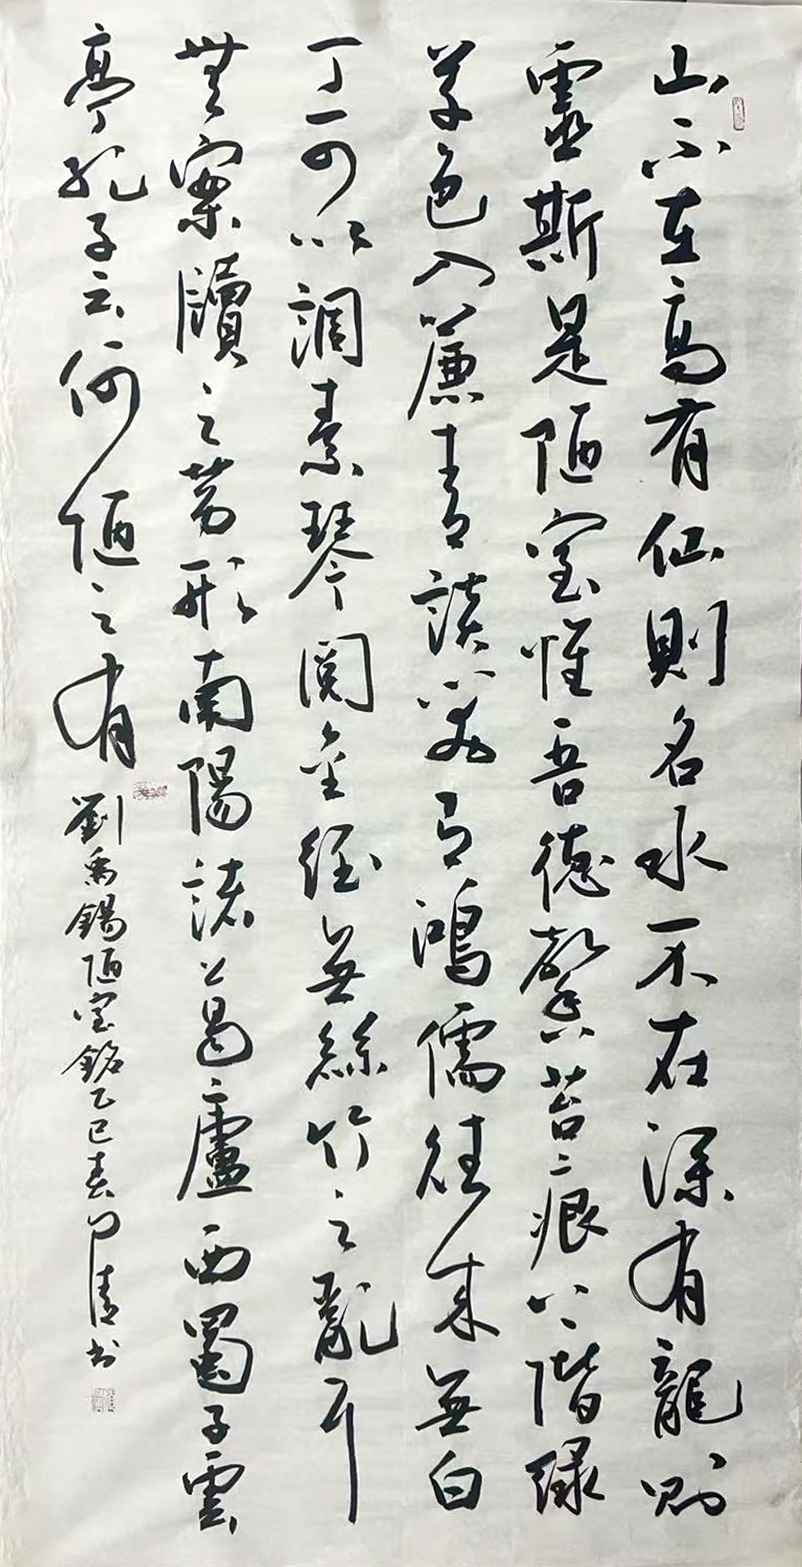 山不在高有仙則名水不在深有龍則
靈斯是陋室惟吾德馨苔痕上階綠
草色入簾青談笑有鴻儒往來無白
丁可以調素琴閱金經無絲竹之亂耳
無案牘之勞形南陽諸葛廬西蜀子雲
亭孔子云何陋之有
劉禹錫陋室銘乙巳春清書